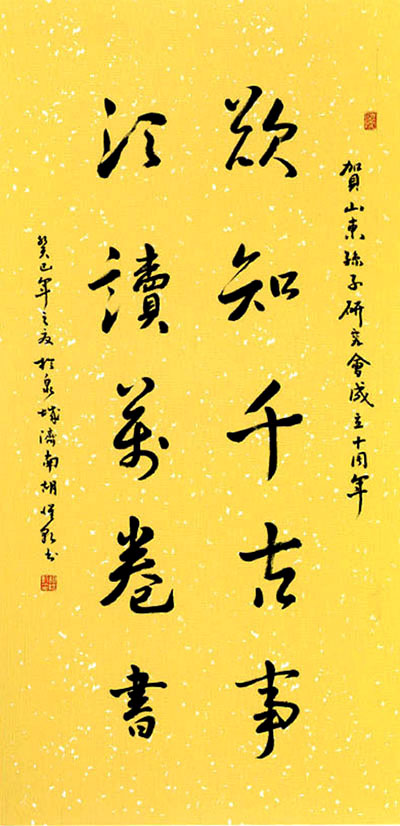 賀山東孫子研究會成立十周年
欲知千古事
須讀萬卷書
癸巳年之夏於泉城濟南胡書